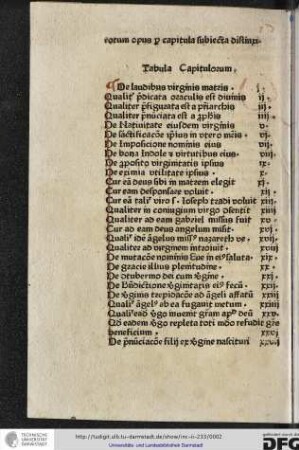 totum opus p capitula subiecta distinxi.
Tabula Capitulorum.
De laudibus virginis matris . i.
Qualit' pdicata oraculis est diuinis ij.
Qualiter pfigurata est a priarchis iij.
Qualiter pnunciata est a pphis iiij.
De Natiuitate eiusdem virginis v.
De sctificatione ipius in vtero mris vi.
De Imposicione nominis eius vij.
De bona Indole et virtutibus eius viij.
De pposito virginitatis ipsius ix.
De eximia vtilitate ipsius x.
Cur ea deus sibi in matrem elegit xi.
Cur eam desponsare voluit xij.
Cur ea tali viro s. Ioseph tradi voluit xiij
Qualiter in coniugium virgo psentit xiiij
Qualiter ad eam gabriel missus fuit xv
Cur ad eam deus angelum misit. xvi.
Quali' ide agelus miss' nazareth ve. xvij
Qualiter ad virginem intrauit xviij
De mutacoe nominis Eue in ei' saluta. xix.
De gracie illius plenitudine xx.
De ptubernio dei cum vgine xxi.
De Bndictione vginitatis ei' fecu. xxij
De vginis trepidacoe ad ageli affatu xxiij
Quali' agel' ab ea fugauit metum xxiiij
Quali' ead vgo inuenit gram apd deu xxv.
Qd eadem vgo repleta toti mdo refudit gre
beneficium xxvi
De pnuciacoe filij ex vgine nascituri xxvij
TECHNISCHE
UNIVERSITÄT
DARMSTADT
http://tudigit.ulb.tu-darmstadt.de/show/inc-ii-233/0002
Universitäts- und Landesbibliothek Darmstadt
DFG